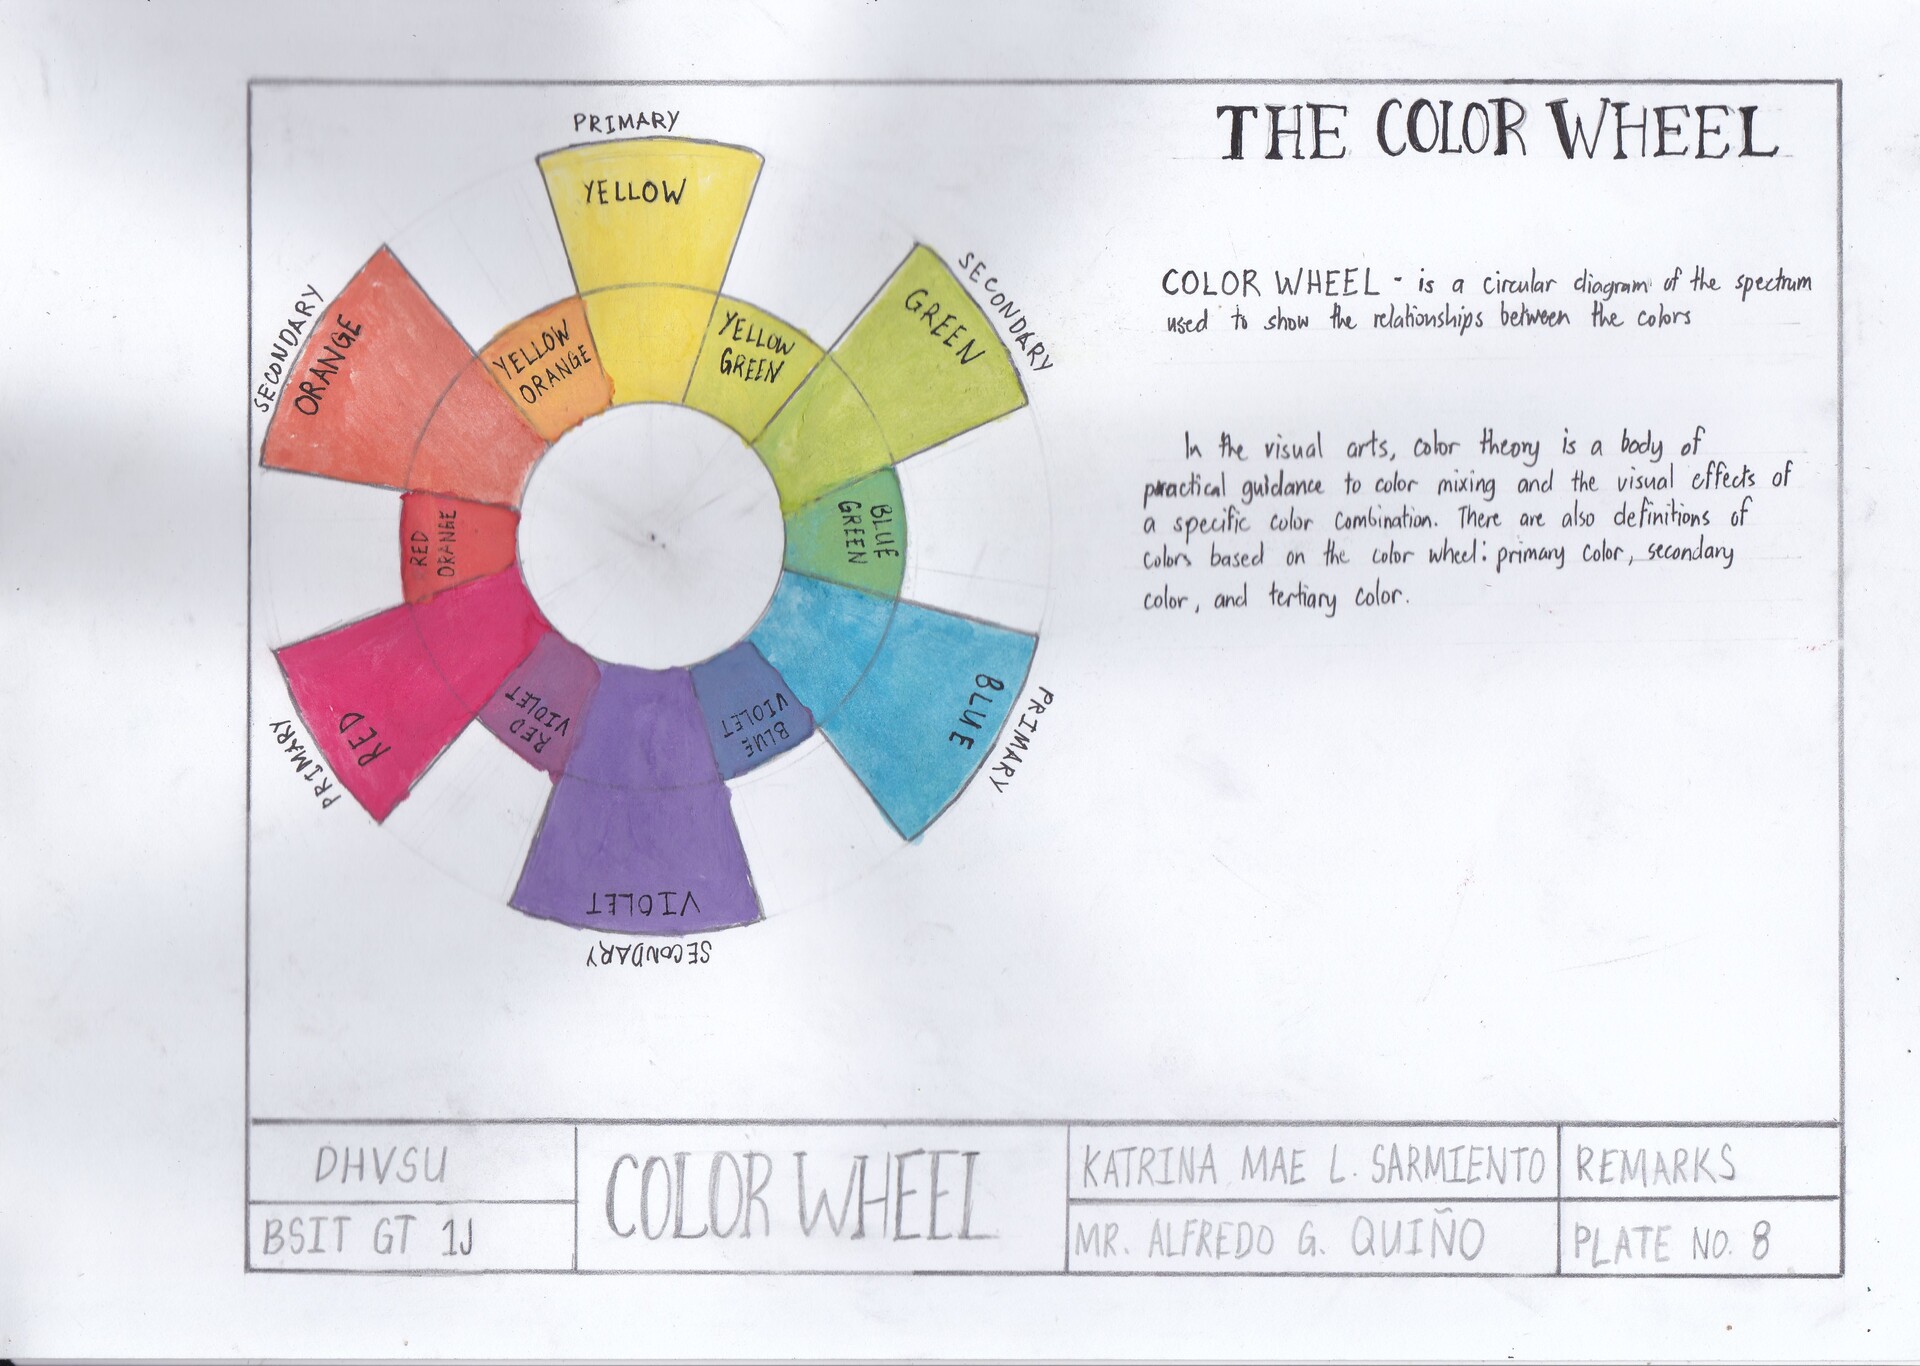 THE COLOR WHEEL
PRIMARY
YELLOW
SECONDARY
GREEN
YELLOW
GREEN
BLUE
GREEN
PRIMARY
BLUE
BLUE
VIOLET
VIOLET
SECONDARY
RED
VIOLET
PRIMARY
RED
RED
ORANGE
SECONDARY
ORANGE
YELLOW
ORANGE
COLOR WHEEL - is a circular diagram of the spectrum
used to show the relationships between the colors
In the visual arts, color theory is a body of
practical guidance to color mixing and the visual effects of
a specific color combination. There are also definitions of
colors based on the color wheel: primary color, secondary
color, and tertiary color.
DHVSU
BSIT GT 1J
COLOR WHEEL
KATRINA MAE L. SARMIENTO
MR. ALFREDO G. QUIÑO
REMARKS
PLATE NO. 8